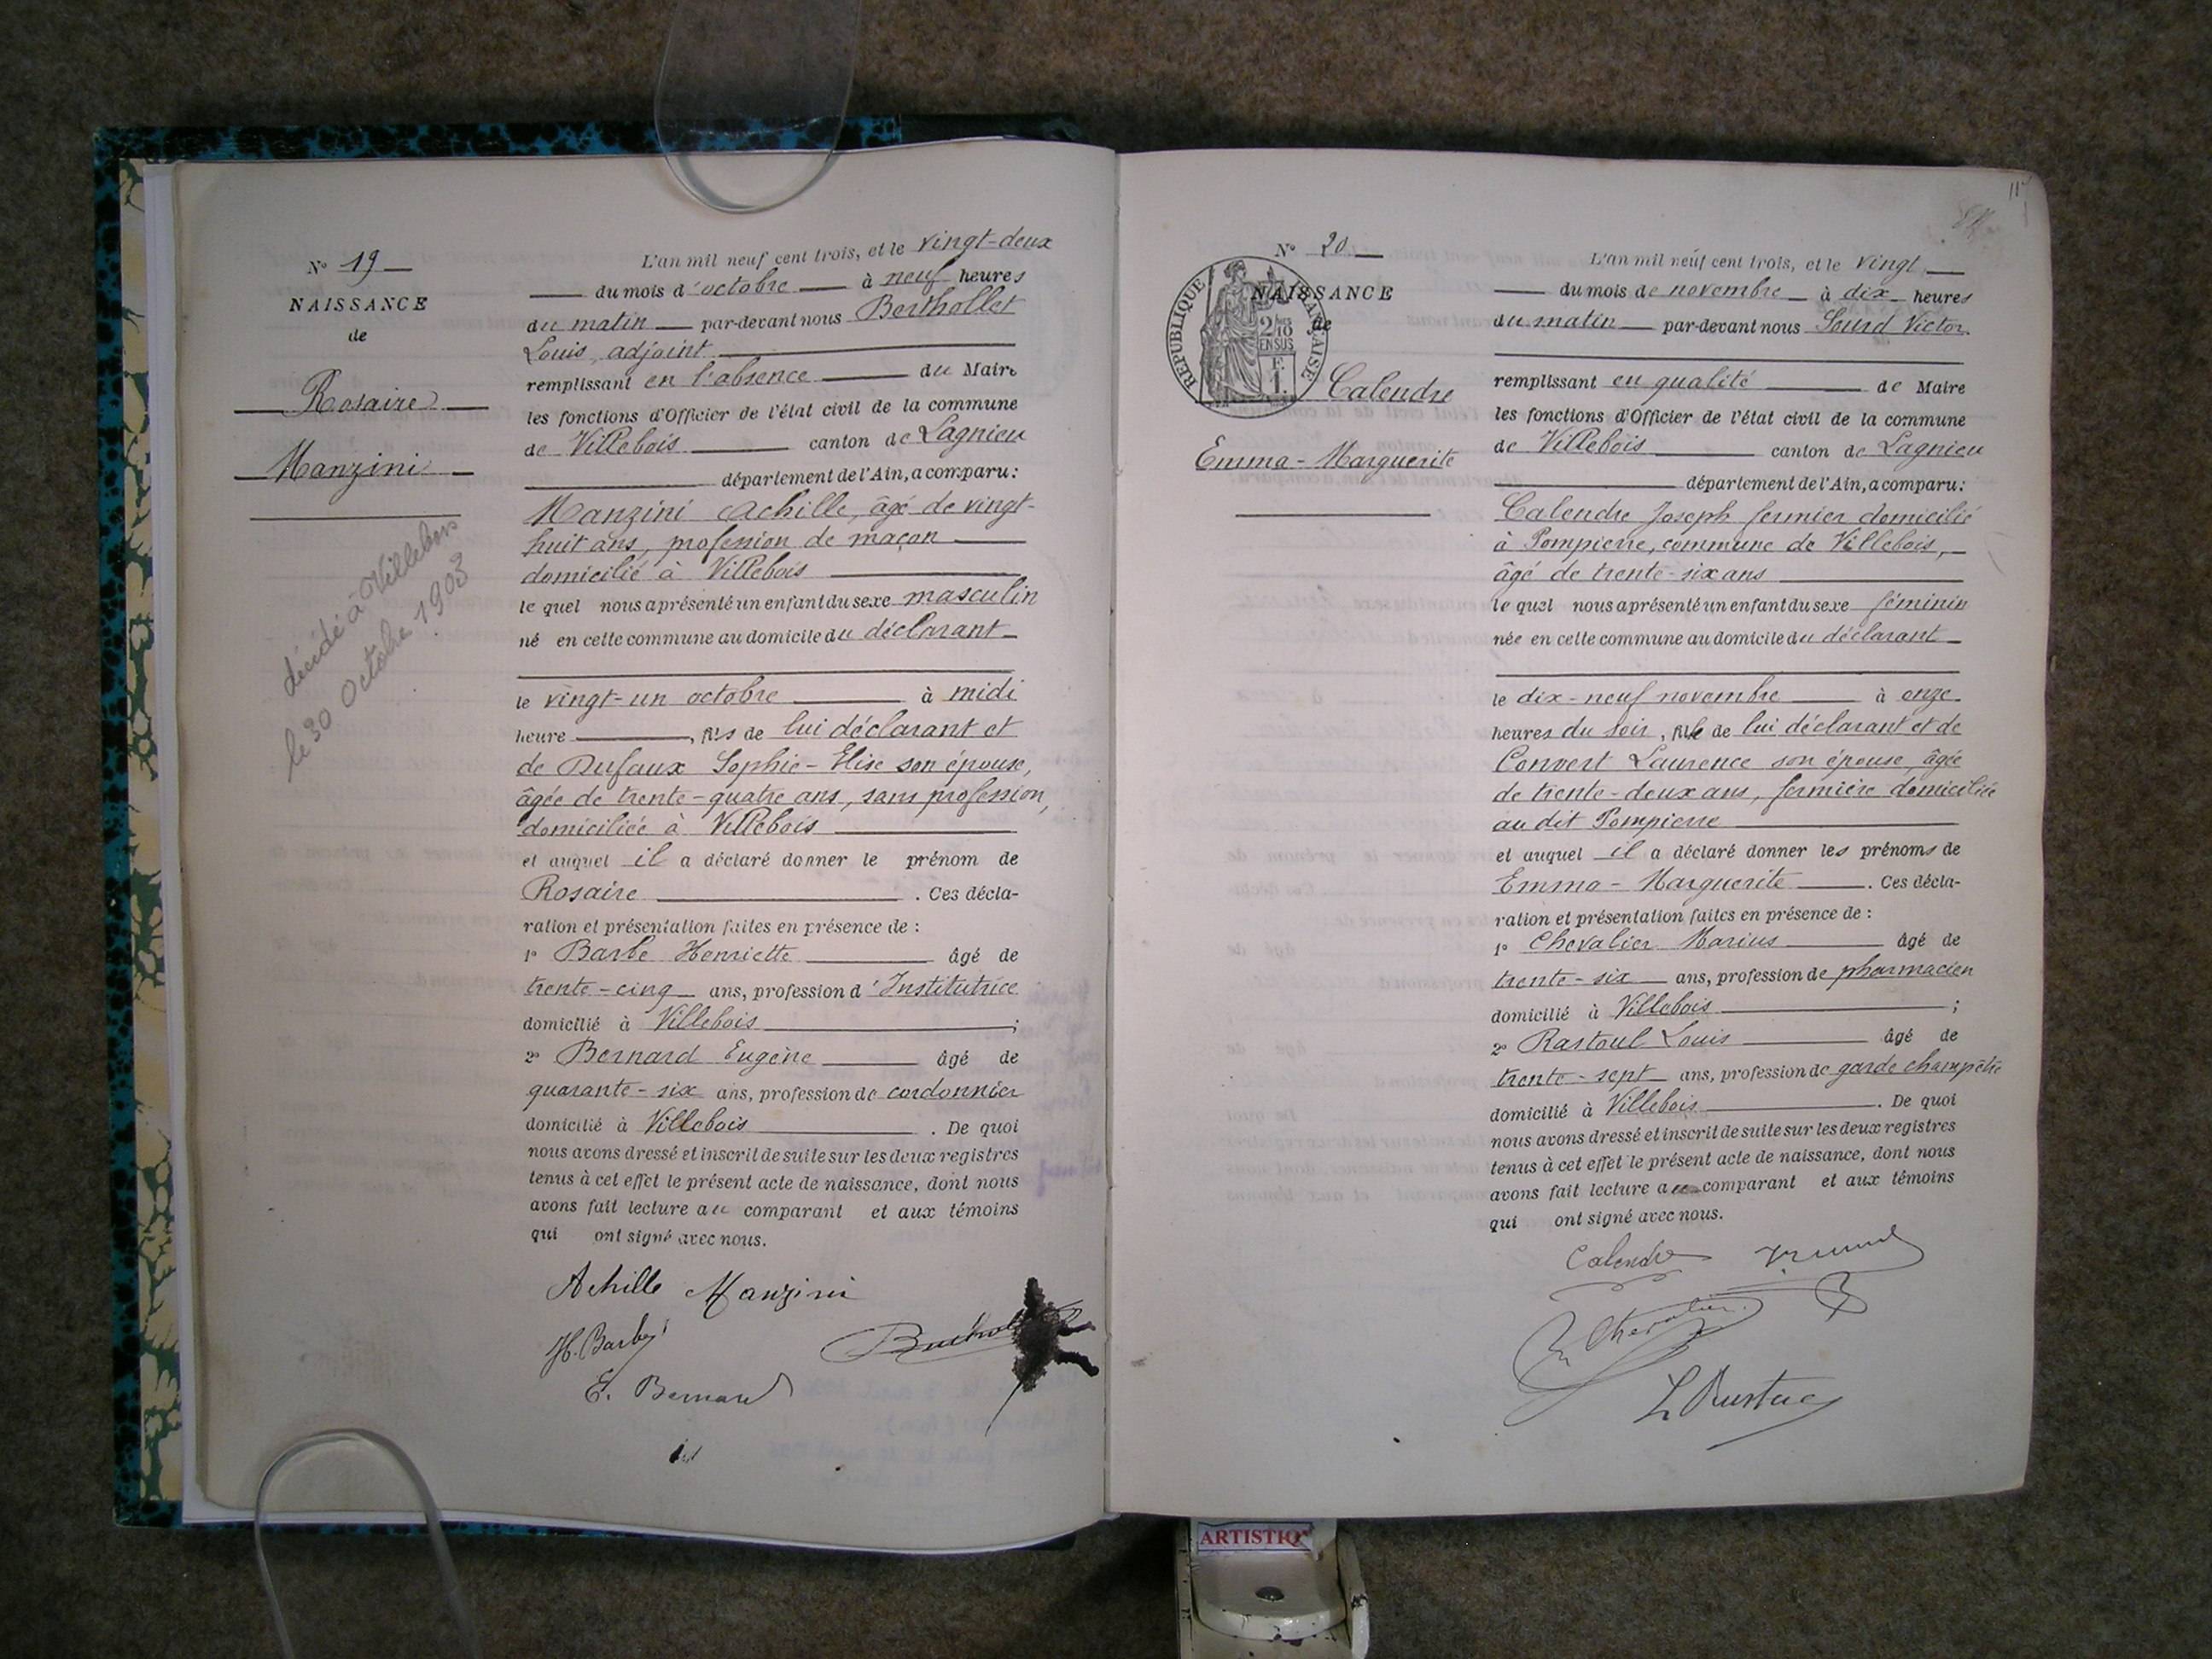 N° 19
NAISSANCE
de
Rosaire
Manzini
décédé à Villebois
le 30 Octobre 1903
L'an mil neuf cent trois, et le vingt-deux
du mois d'octobre à neuf heures
du matin par-devant nous Berthollet
Louis, adjoint
remplissant en l'absence du Maire
les fonctions d'Officier de l'état civil de la commune
de Villebois canton de Lagnieu
département de l'Ain, a comparu:
Manzini Achille, âgé de vingt-
huit ans, profession de maçon
domicilié à Villebois
le quel nous a présenté un enfant du sexe masculin
né en cette commune au domicile du déclarant
le vingt-un octobre à midi
heure , fils de lui déclarant et
de Dufaux Sophie-Elise son épouse,
âgée de trente-quatre ans, sans profession,
domiciliée à Villebois
et auquel il a déclaré donner le prénom de
Rosaire . Ces décla-
ration et présentation faites en présence de :
1° Barbe Henriette âgé de
trente-cinq ans, profession d'Institutrice
domicilié à Villebois ;
2° Bernard Eugène âgé de
quarante-six ans, profession de cordonnier
domicilié à Villebois . De quoi
nous avons dressé et inscrit de suite sur les deux registres
tenus à cet effet le présent acte de naissance, dont nous
avons fait lecture au comparant et aux témoins
qui ont signé avec nous.
Achille Manzini
H. Barbe
E. Bernard
N° 20
NAISSANCE
de
RÉPUBLIQUE FRANÇAISE
2/10
EN SUS
F.
1.
Calendre
Emma-Marguerite
L'an mil neuf cent trois, et le vingt
du mois de novembre à dix heures
du matin par-devant nous Sourd Victor
remplissant en qualité de Maire
les fonctions d'Officier de l'état civil de la commune
de Villebois canton de Lagnieu
département de l'Ain, a comparu:
Calendre Joseph fermier domicilié
à Pompierre, commune de Villebois,
âgé de trente-six ans
le quel nous a présenté un enfant du sexe féminin
née en cette commune au domicile du déclarant
le dix-neuf novembre à onze
heures du soir, fille de lui déclarant et de
Convert Laurence son épouse, âgée
de trente-deux ans, fermière domiciliée
au dit Pompierre
et auquel il a déclaré donner les prénoms de
Emma-Marguerite . Ces décla-
ration et présentation faites en présence de :
1° Chevalier Marius âgé de
trente-six ans, profession de pharmacien
domicilié à Villebois ;
2° Rastoul Louis âgé de
trente-sept ans, profession de garde champêtre
domicilié à Villebois . De quoi
nous avons dressé et inscrit de suite sur les deux registres
tenus à cet effet le présent acte de naissance, dont nous
avons fait lecture au comparant et aux témoins
qui ont signé avec nous.
Calendre
Chevalier
ARTISTIQ